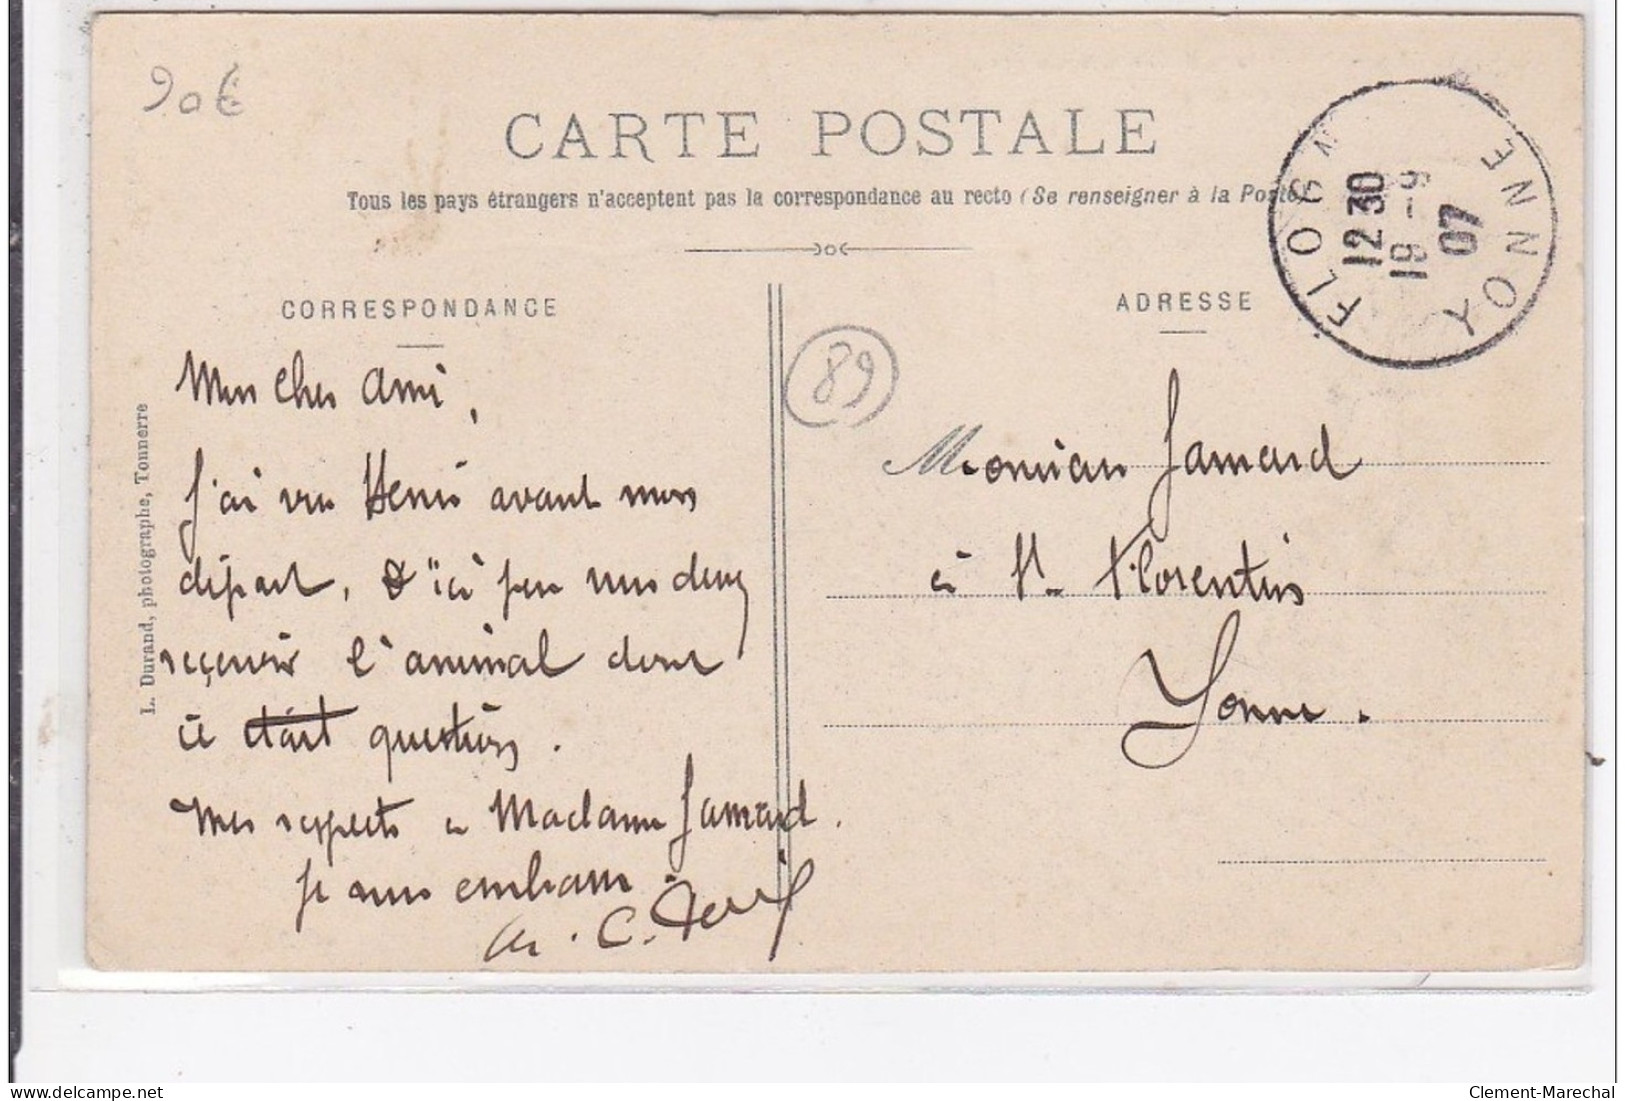 90€
CARTE POSTALE
Tous les pays étrangers n'acceptent pas la correspondance au recto (Se renseigner à la Poste)
FLOGNY
YONNE
12 30
19 - 9
07
CORRESPONDANCE
ADRESSE
89
L. Durand, photographe, Tonnerre
Mon cher Ami,
J'ai vu Henri avant mon
départ, d'ici peu vous devez
reçevoir l'animal dont
il était question.
Mes respects à Madame Jamard.
Je vous embrasse.
C.
Monsieur Jamard
à St Florentin
Yonne.
delcampe.net
Clement-Marechal